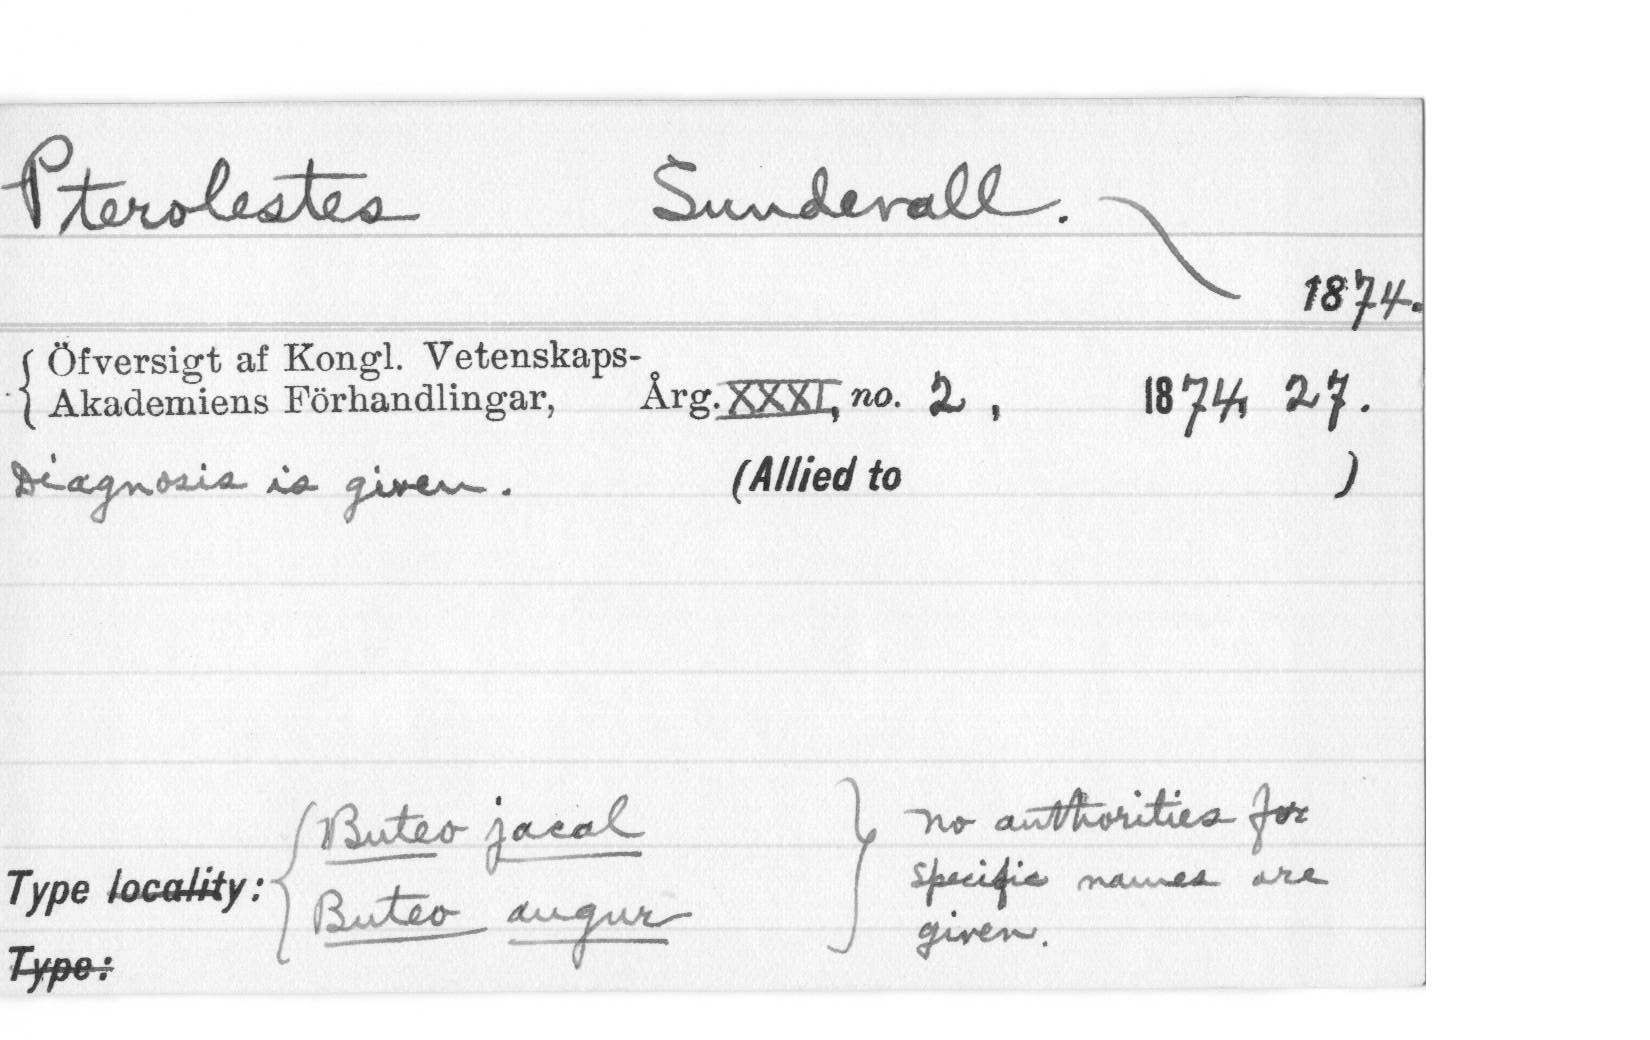 Pterolestes Sundevall.
1874.
Öfversigt af Kongl. Vetenskaps-
Akademiens Förhandlingar, Årg. XXXI, no. 2, 1874, 27.
Diagnosis is given. (Allied to )
Buteo jacal
Type locality:
Buteo augur
no authorities for
specific names are
given.
Type: